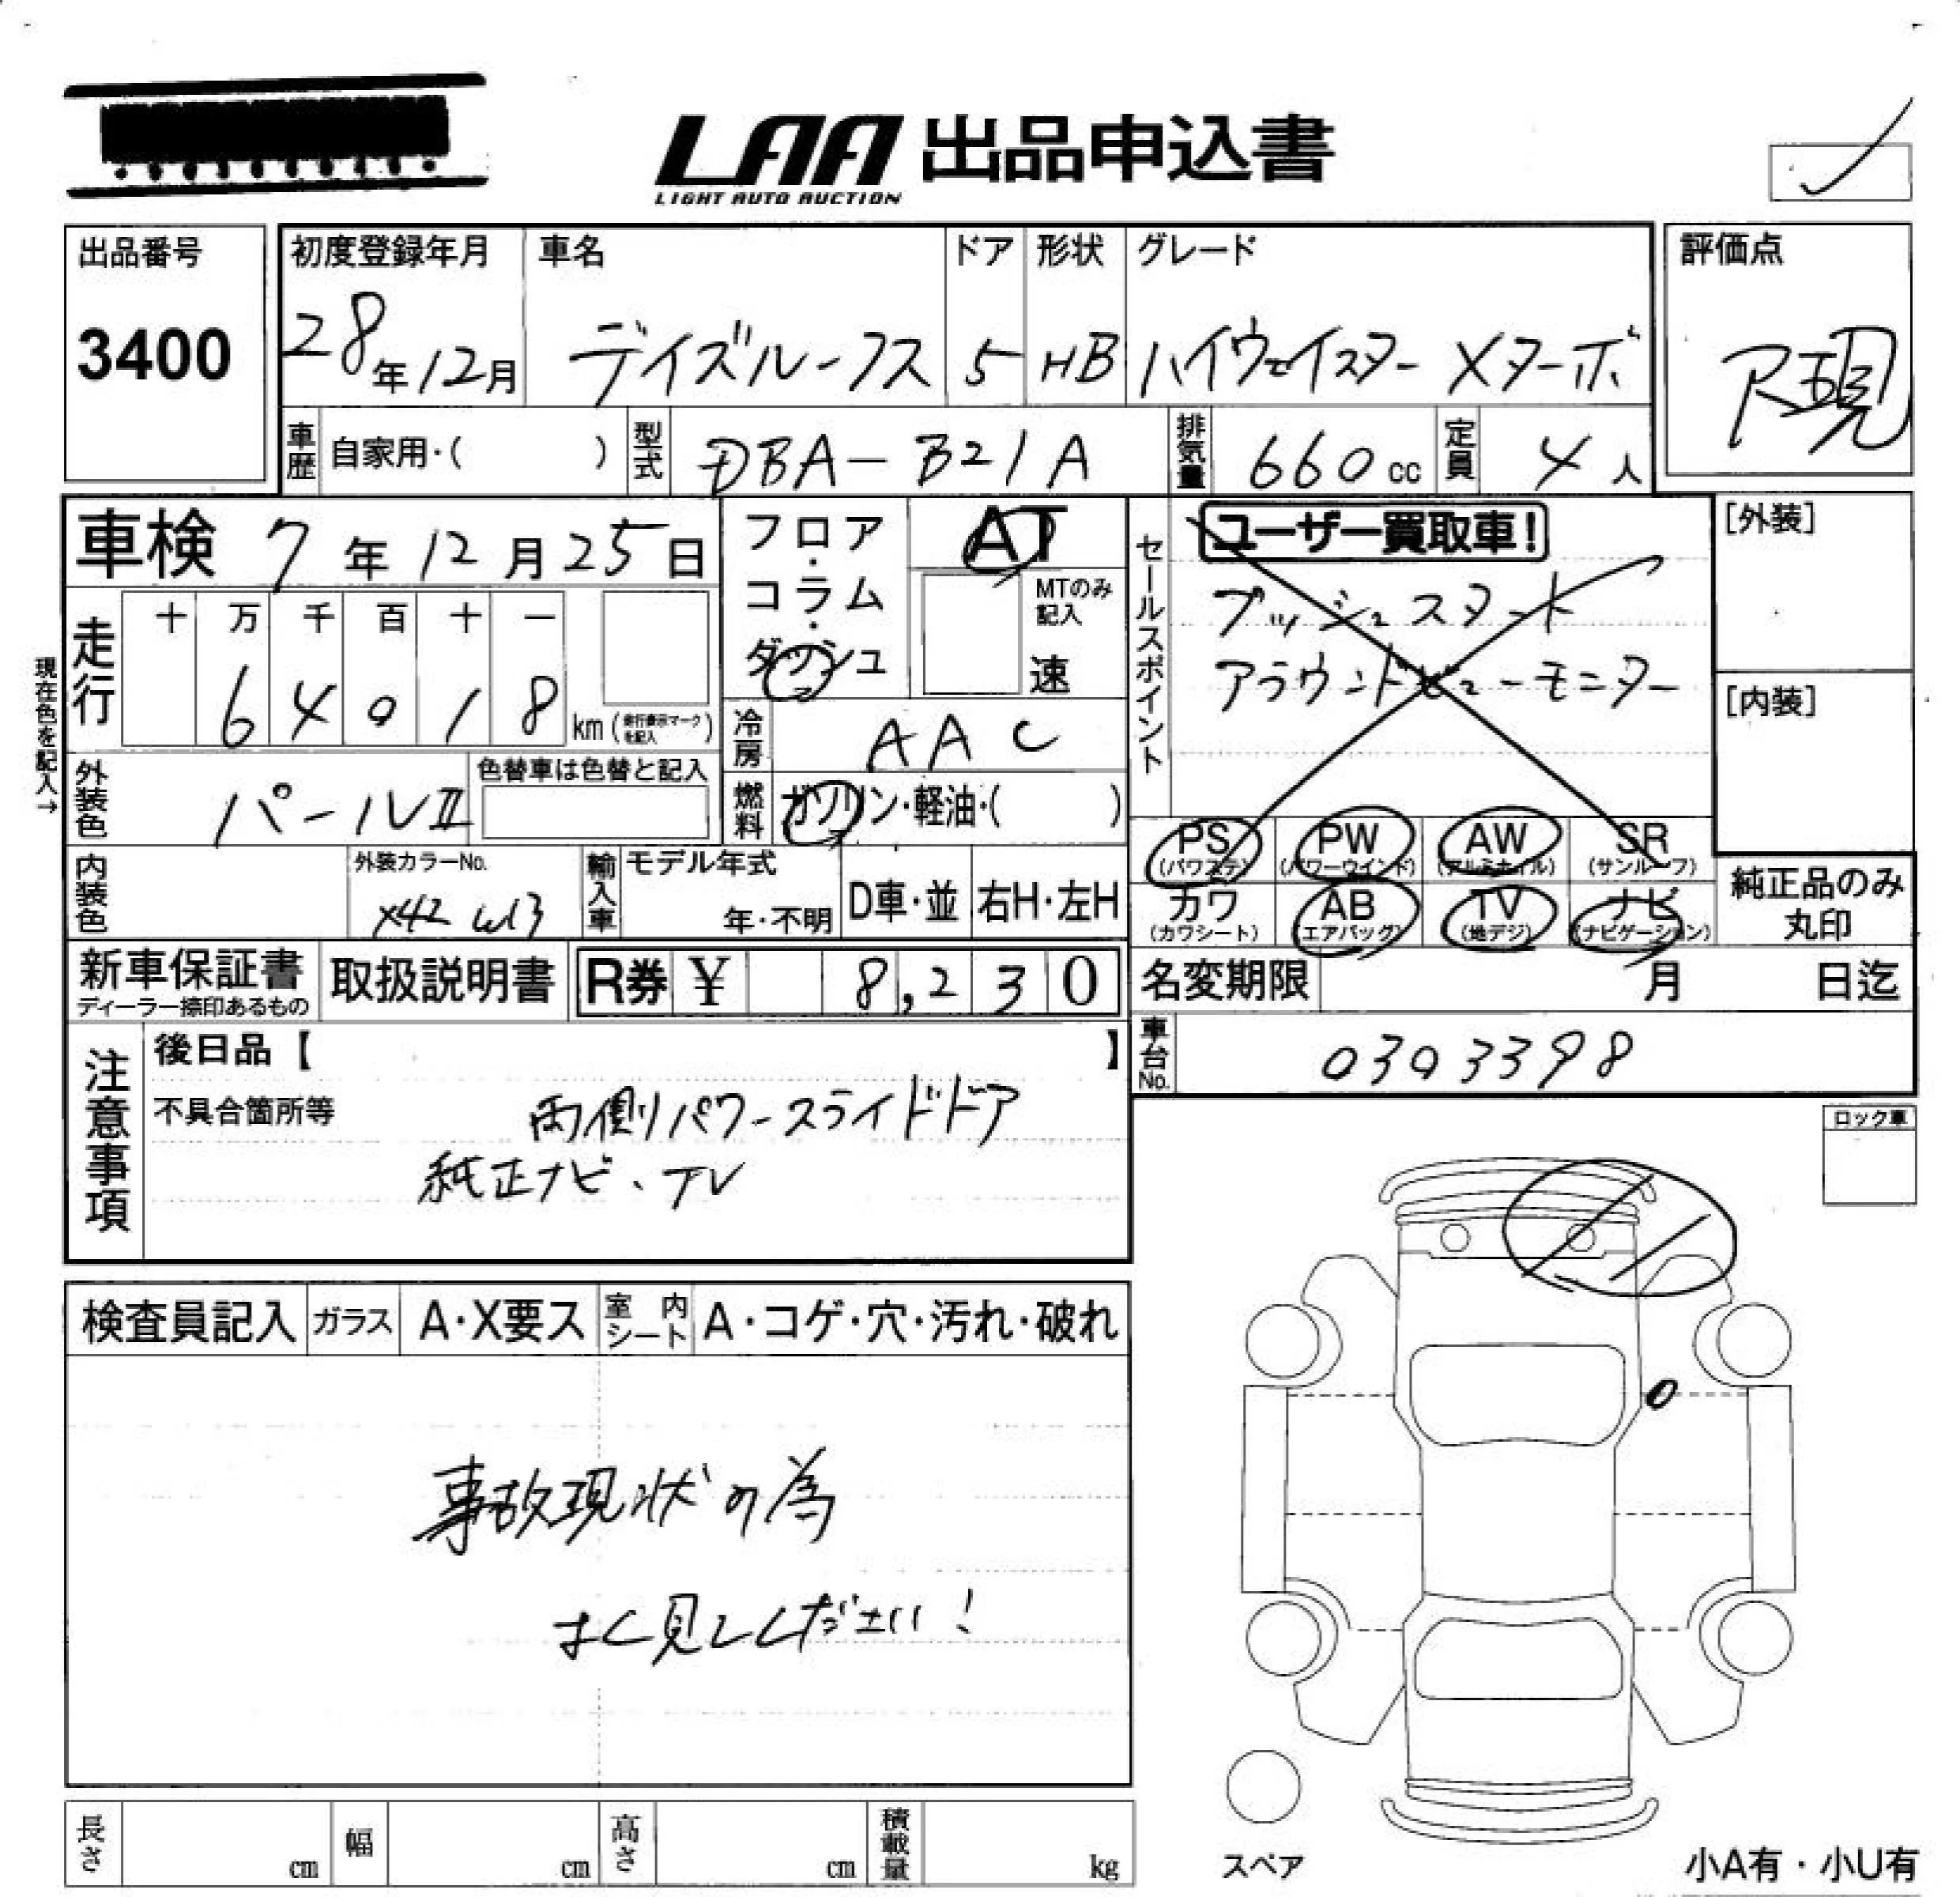 LAA 出品申込書
LIGHT AUTO AUCTION
出品番号
3400
初度登録年月
28年12月
車名
デイズルークス
ドア
5
形状
HB
グレード
ハイウェイスター Xターボ
評価点
R現
車歴
自家用・( )
型式
DBA-B21A
排気量
660cc
定員
4人
車検 7年12月25日
フロア・コラム・ダッシュ
AT
MTのみ記入
速
セールスポイント
ユーザー買取車!
プッシュスタート
アラウンドビューモニター
[外装]
[内装]
現在色を記入→
走行
十 万 千 百 十 一
6 4 0 1 8 km (走行表示マークを記入)
冷房
AAC
外装色
パールⅡ
色替車は色替と記入
燃料
ガソリン・軽油・( )
PS (パワステ)
PW (パワーウインド)
AW (アルミホイル)
SR (サンルーフ)
カワ (カワシート)
AB (エアバッグ)
TV (地デジ)
ナビ (ナビゲーション)
純正品のみ丸印
内装色
外装カラーNo.
X42 W13
輸入車
モデル年式
年・不明
D車・並
右H・左H
新車保証書
ディーラー捺印あるもの
取扱説明書
R券 ¥ 8,230
名変期限 月 日迄
車台No.
0303398
注意事項
後日品【 】
不具合箇所等
両側パワースライドドア
純正ナビ、TV
ロック車
検査員記入
ガラス
A・X要ス
室内シート
A・コゲ・穴・汚れ・破れ
事故現状の為
よく見してください!
長さ cm
幅 cm
高さ cm
積載量 kg
スペア
小A有・小U有